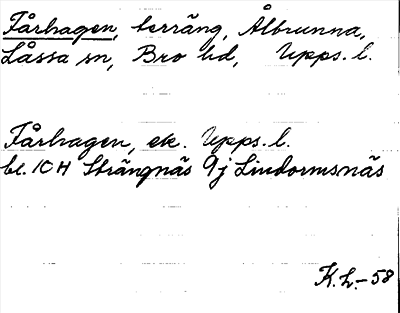 Fårhagen, terräng, Ålbrunna,
Låssa sn, Bro hd, Upps. l.
Fårhagen, ek. Upps. l.
bl. 10 H Strängnäs 9j Lindormsnäs
K.L.-58